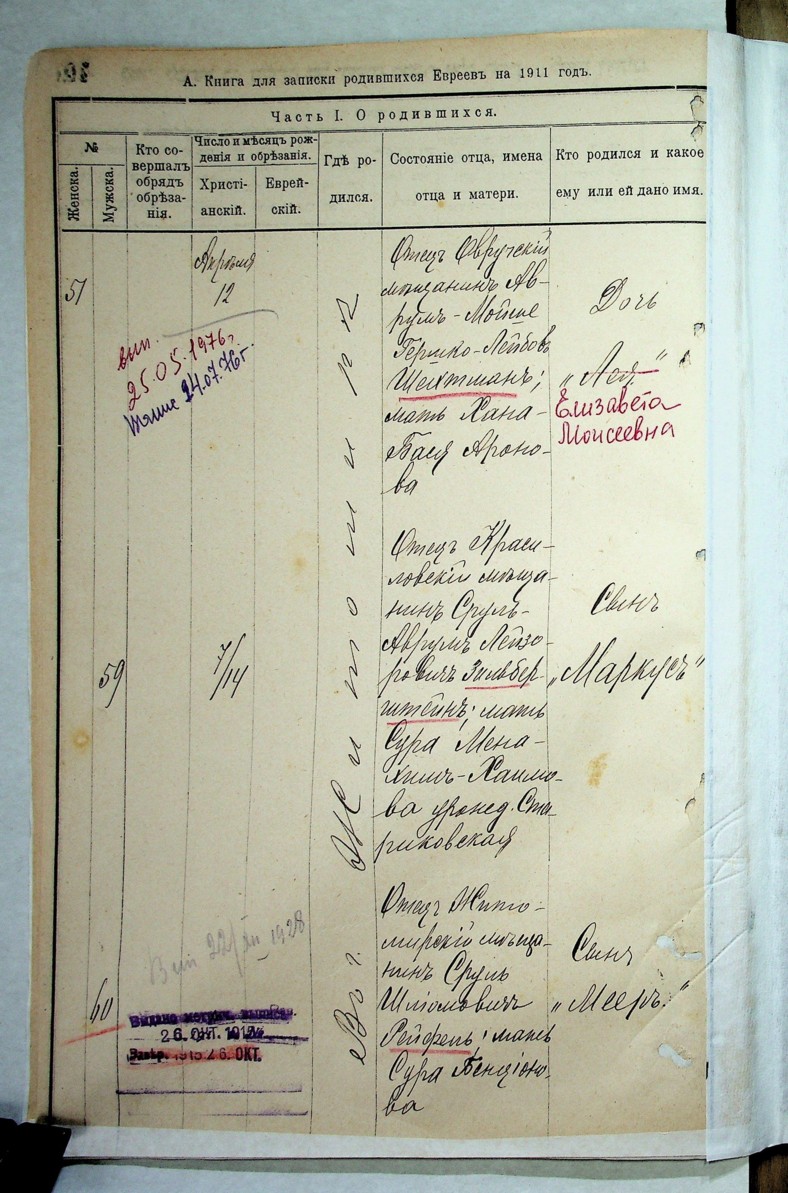 А. Книга для записки родившихся Евреевъ на 1911 годъ.
Часть I. О родившихся.
№
Женска.
Мужска.
Кто со-
вершалъ
обрядъ
обрѣза-
нія.
Число и мѣсяцъ рож-
денія и обрѣзанія.
Христі-
анскій.
Еврей-
скій.
Гдѣ ро-
дился.
Состояніе отца, имена
отца и матери.
Кто родился и какое
ему или ей дано имя.
Въ г. Житомирѣ
51
Апрѣля
12
вып.
25.05.1976г.
14.07.76г.
Отецъ Овручскій
мѣщанинъ Ав-
румъ-Мойше
Гершко-Лейбовъ
Шейхтманъ;
мать Хана-
Бася Ароно-
ва
Дочь
„Лея"
Елизавета
Моисеевна
59
7/14
Отецъ Краси-
ловскій мѣща-
нинъ Сруль-
Аврумъ Лейзо-
ровичъ Зильбер-
штейнъ; мать
Сура Мена-
химъ-Хаимо-
ва урожд. Ста-
риковская
Сынъ
„Маркусъ"
60
Вып 22/XII 1928
Видано метрич. выпись.
26. ОКТ.
1915 26. ОКТ.
Отецъ Жито-
мирскій мѣща-
нинъ Сруль
Шліомовичъ
Рейфель; мать
Сура Бенціоно-
ва
Сынъ
„Мееръ."